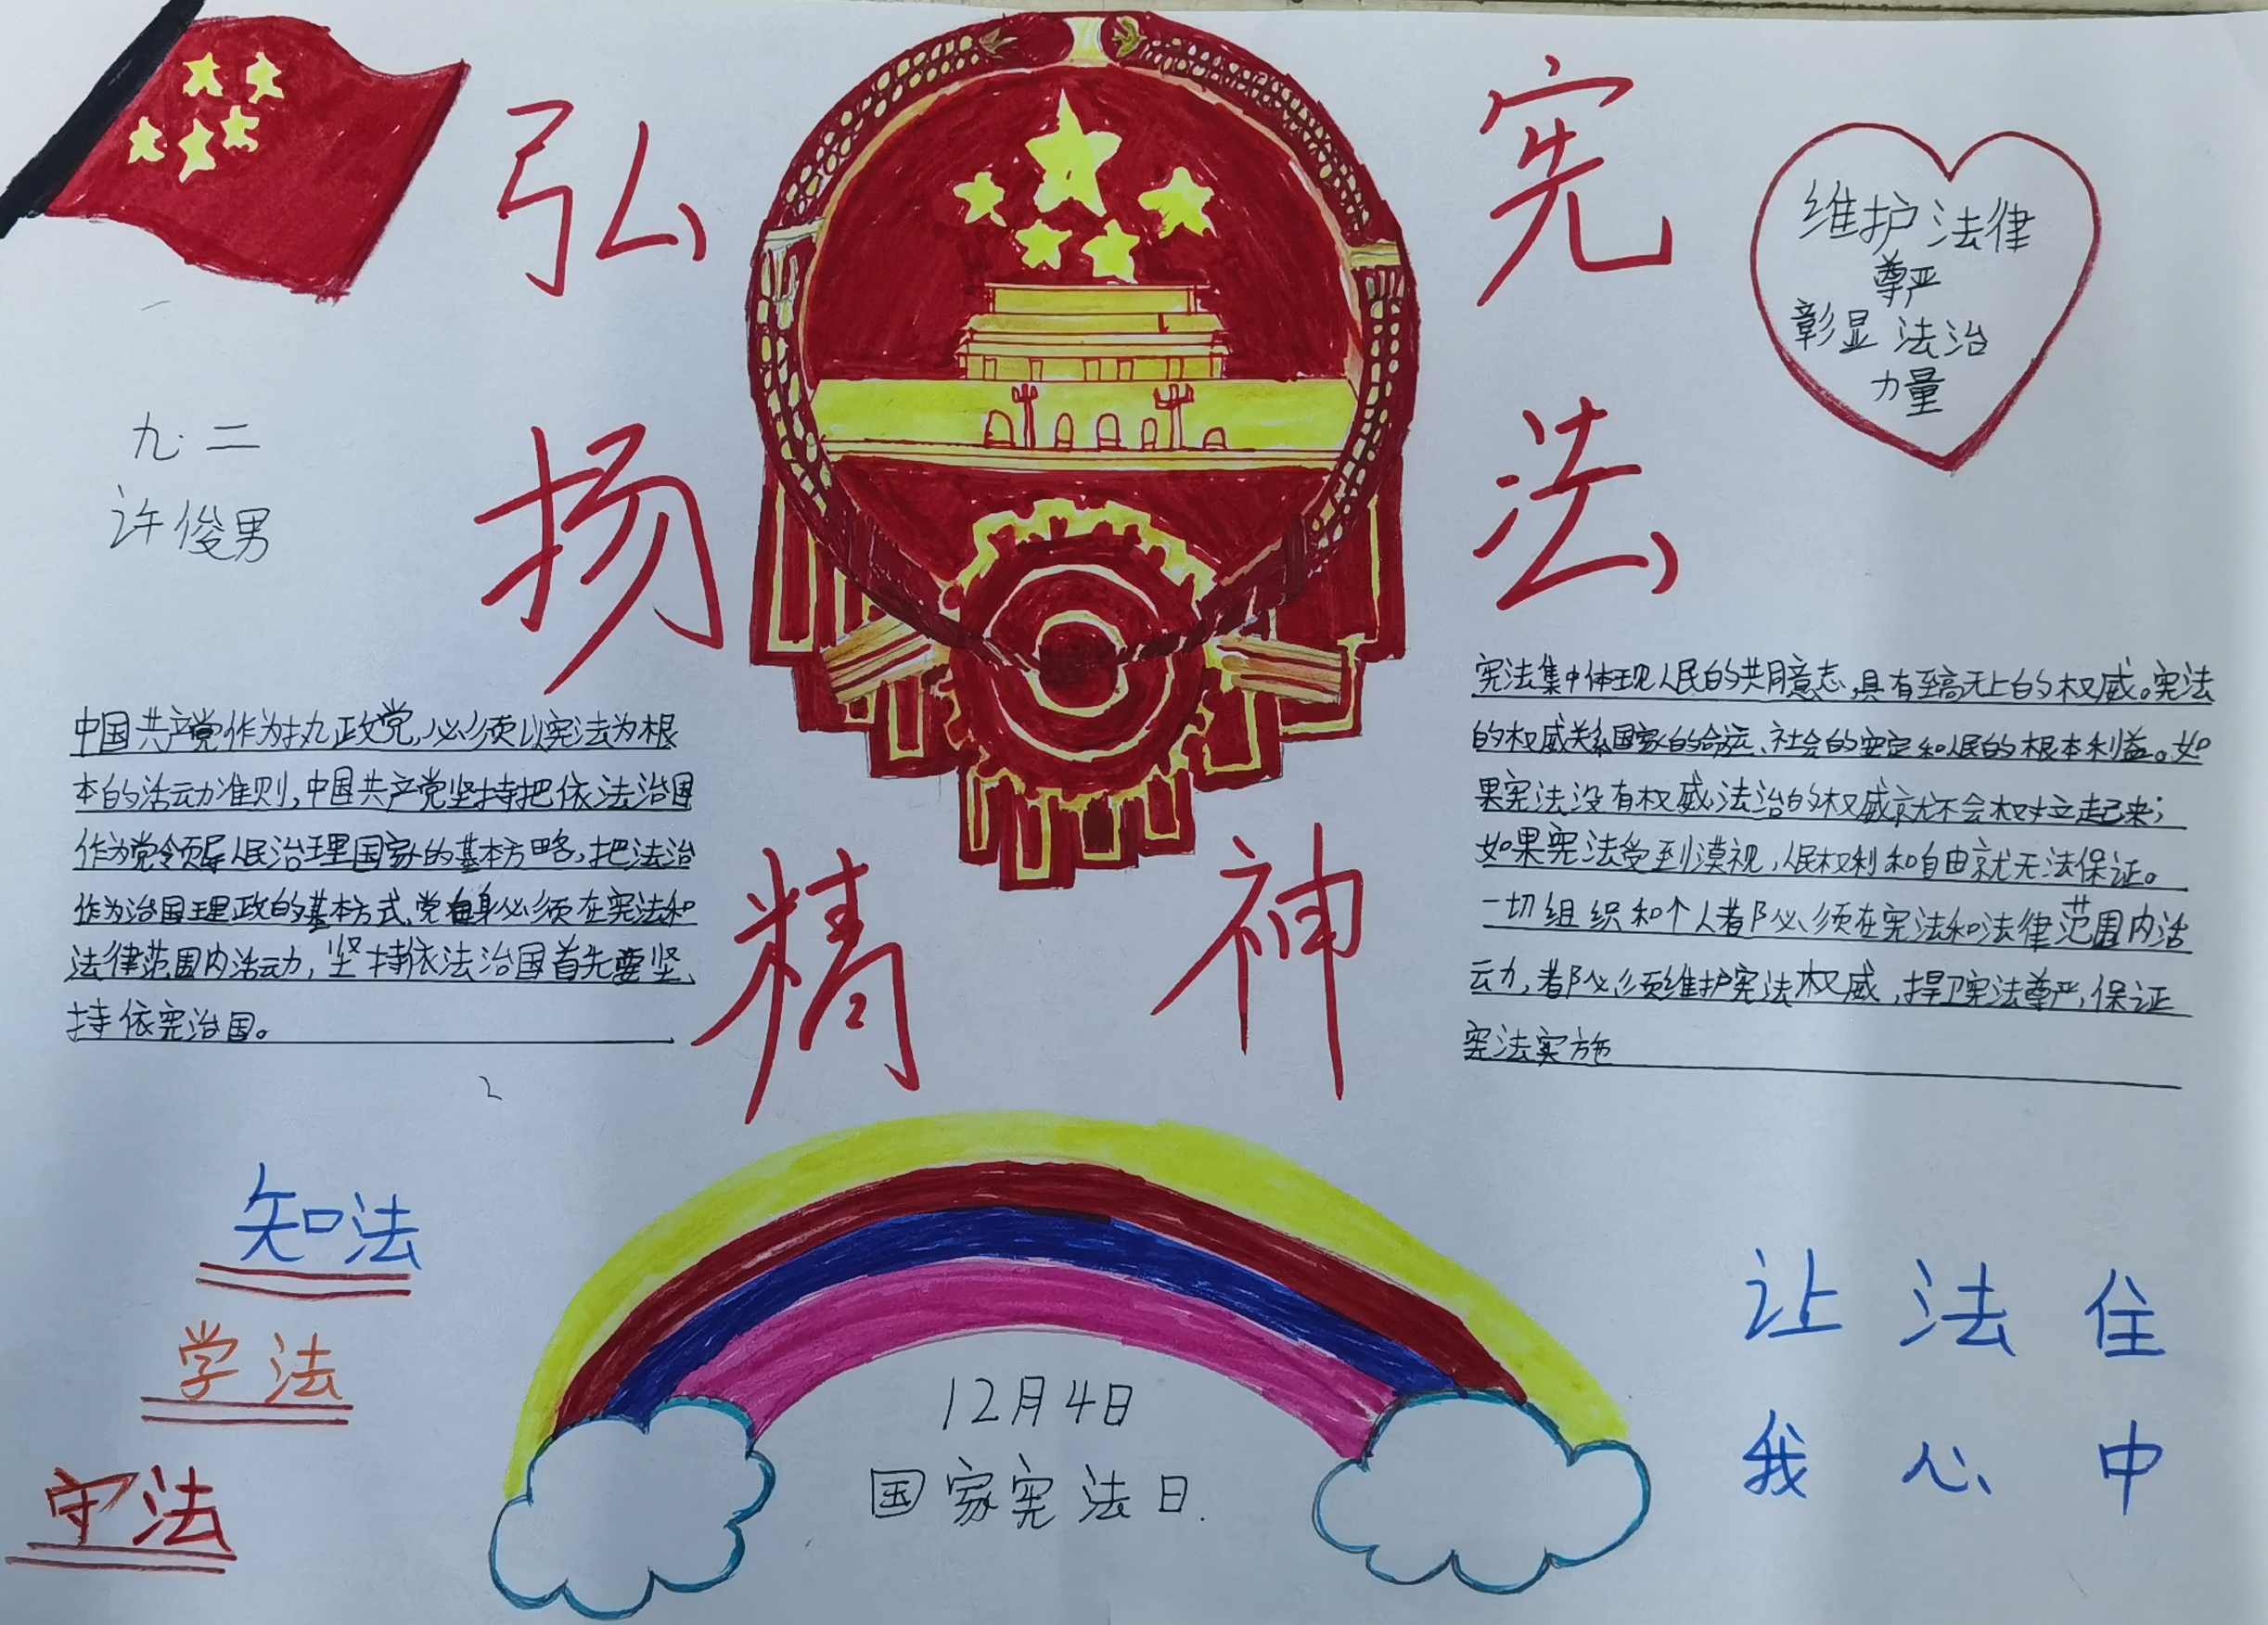 弘扬
宪法
精神
维护法律
尊严
彰显法治
力量
九.二
许俊男
中国共产党作为执政党,必须以宪法为根
本的活动准则,中国共产党坚持把依法治国
作为党领导人民治理国家的基本方略,把法治
作为治国理政的基本方式,党自身必须在宪法和
法律范围内活动,坚持依法治国首先要坚
持依宪治国。
宪法集中体现人民的共同意志,具有至高无上的权威。宪法
的权威关系国家的命运、社会的安定和人民的根本利益。如
果宪法没有权威,法治的权威就不会树立起来;
如果宪法受到漠视,人民权利和自由就无法保证。
一切组织和个人都必须在宪法和法律范围内活
动,都必须维护宪法权威,捍卫宪法尊严,保证
宪法实施
知法
学法
守法
12月4日
国家宪法日.
让法住
我心中